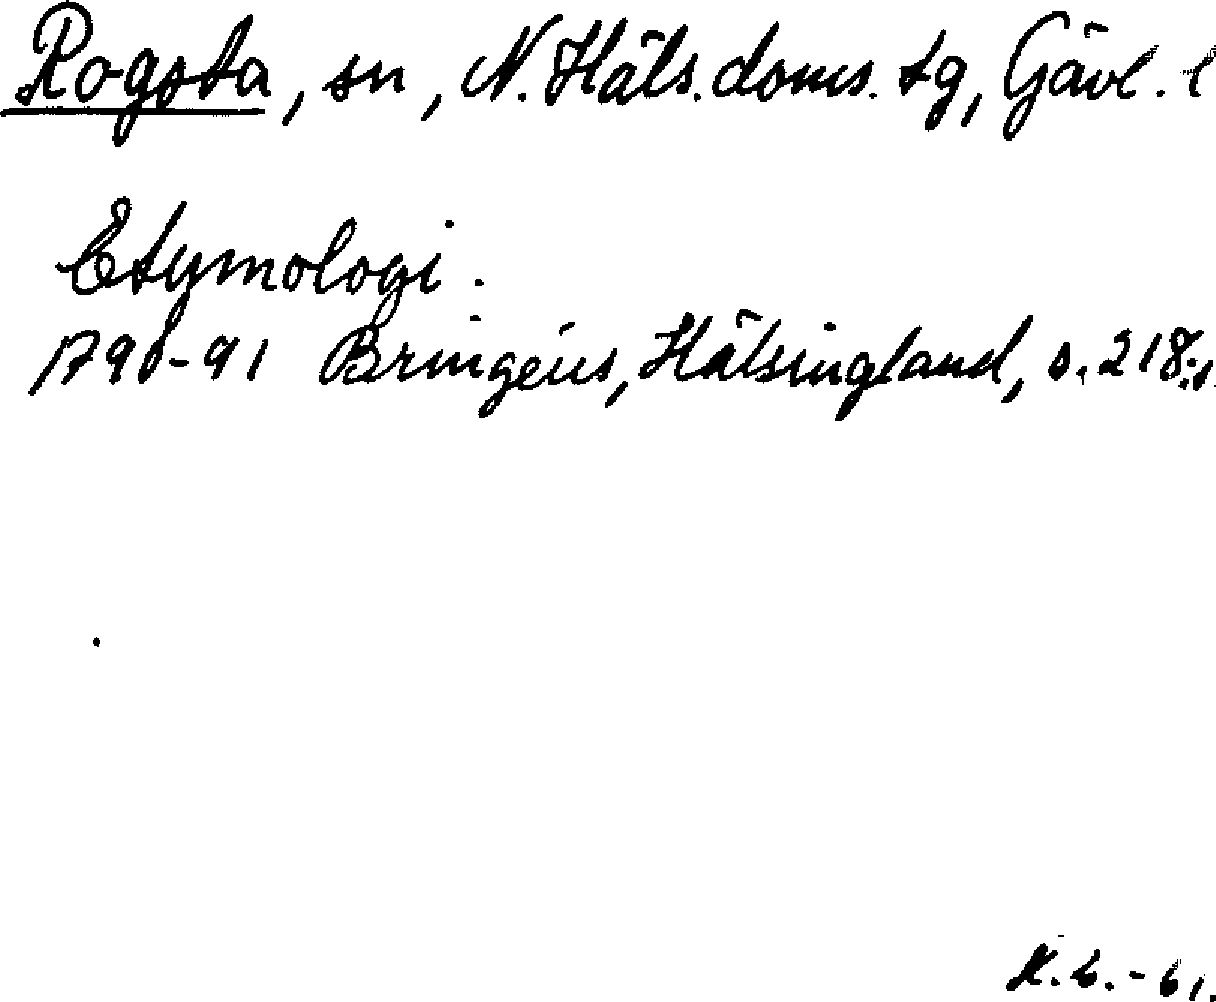 Rogsta, sn, N. Häls. doms. tg, Gävl. l
Etymologi.
1790-91 Bringéus, Hälsingland, s. 218.
K. L. - 61.